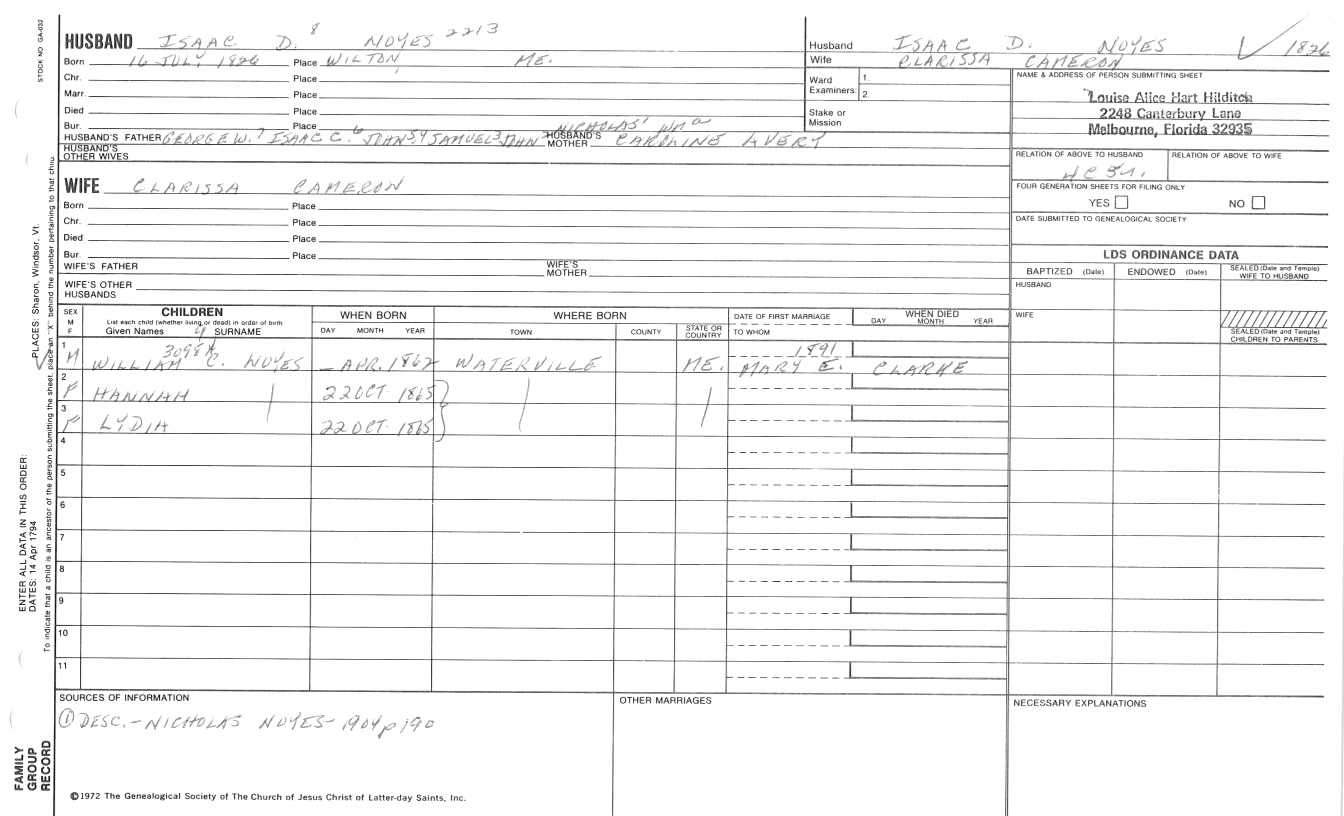 STOCK NO GA-032
HUSBAND ISAAC D. 8 NOYES 2213
Born 16 JULY 1826 Place WILTON, ME.
Chr. Place
Marr. Place
Died Place
Bur. Place
HUSBAND'S FATHER GEORGE W.7 ISAAC C.6 JOHN5,4 SAMUEL3 JOHN2 NICHOLAS1 Wm a HUSBAND'S MOTHER CAROLINE AVERY
HUSBAND'S OTHER WIVES
WIFE CLARISSA CAMERON
Born Place
Chr. Place
Died Place
Bur. Place
WIFE'S FATHER WIFE'S MOTHER
WIFE'S OTHER HUSBANDS
Husband ISAAC D. NOYES 1826
Wife CLARISSA CAMERON
Ward Examiners: 1. 2.
Stake or Mission
NAME & ADDRESS OF PERSON SUBMITTING SHEET
Louise Alice Hart Hilditch
2248 Canterbury Lane
Melbourne, Florida 32935
RELATION OF ABOVE TO HUSBAND RELATION OF ABOVE TO WIFE
FOUR GENERATION SHEETS FOR FILING ONLY
YES NO
DATE SUBMITTED TO GENEALOGICAL SOCIETY
LDS ORDINANCE DATA
BAPTIZED (Date) ENDOWED (Date) SEALED (Date and Temple) WIFE TO HUSBAND
HUSBAND
WIFE
SEALED (Date and Temple) CHILDREN TO PARENTS
SEX M F CHILDREN WHEN BORN WHERE BORN DATE OF FIRST MARRIAGE WHEN DIED
List each child (whether living or dead) in order of birth
Given Names SURNAME DAY MONTH YEAR TOWN COUNTY STATE OR COUNTRY TO WHOM DAY MONTH YEAR
1 3098 1891
M WILLIAM C. NOYES _ APR. 1862 WATERVILLE ME. MARY E. CLARKE
2
F HANNAH 22 OCT 1865
3
F LYDIA 22 OCT 1865
4
5
6
7
8
9
10
11
SOURCES OF INFORMATION OTHER MARRIAGES NECESSARY EXPLANATIONS
① DESC.-NICHOLAS NOYES-1904 p 190
©1972 The Genealogical Society of The Church of Jesus Christ of Latter-day Saints, Inc.
FAMILY
GROUP
RECORD
ENTER ALL DATA IN THIS ORDER:
DATES: 14 Apr 1794
PLACES: Sharon, Windsor, Vt.
To indicate that a child is an ancestor of the person submitting the sheet, place an "X" behind the number pertaining to that child.